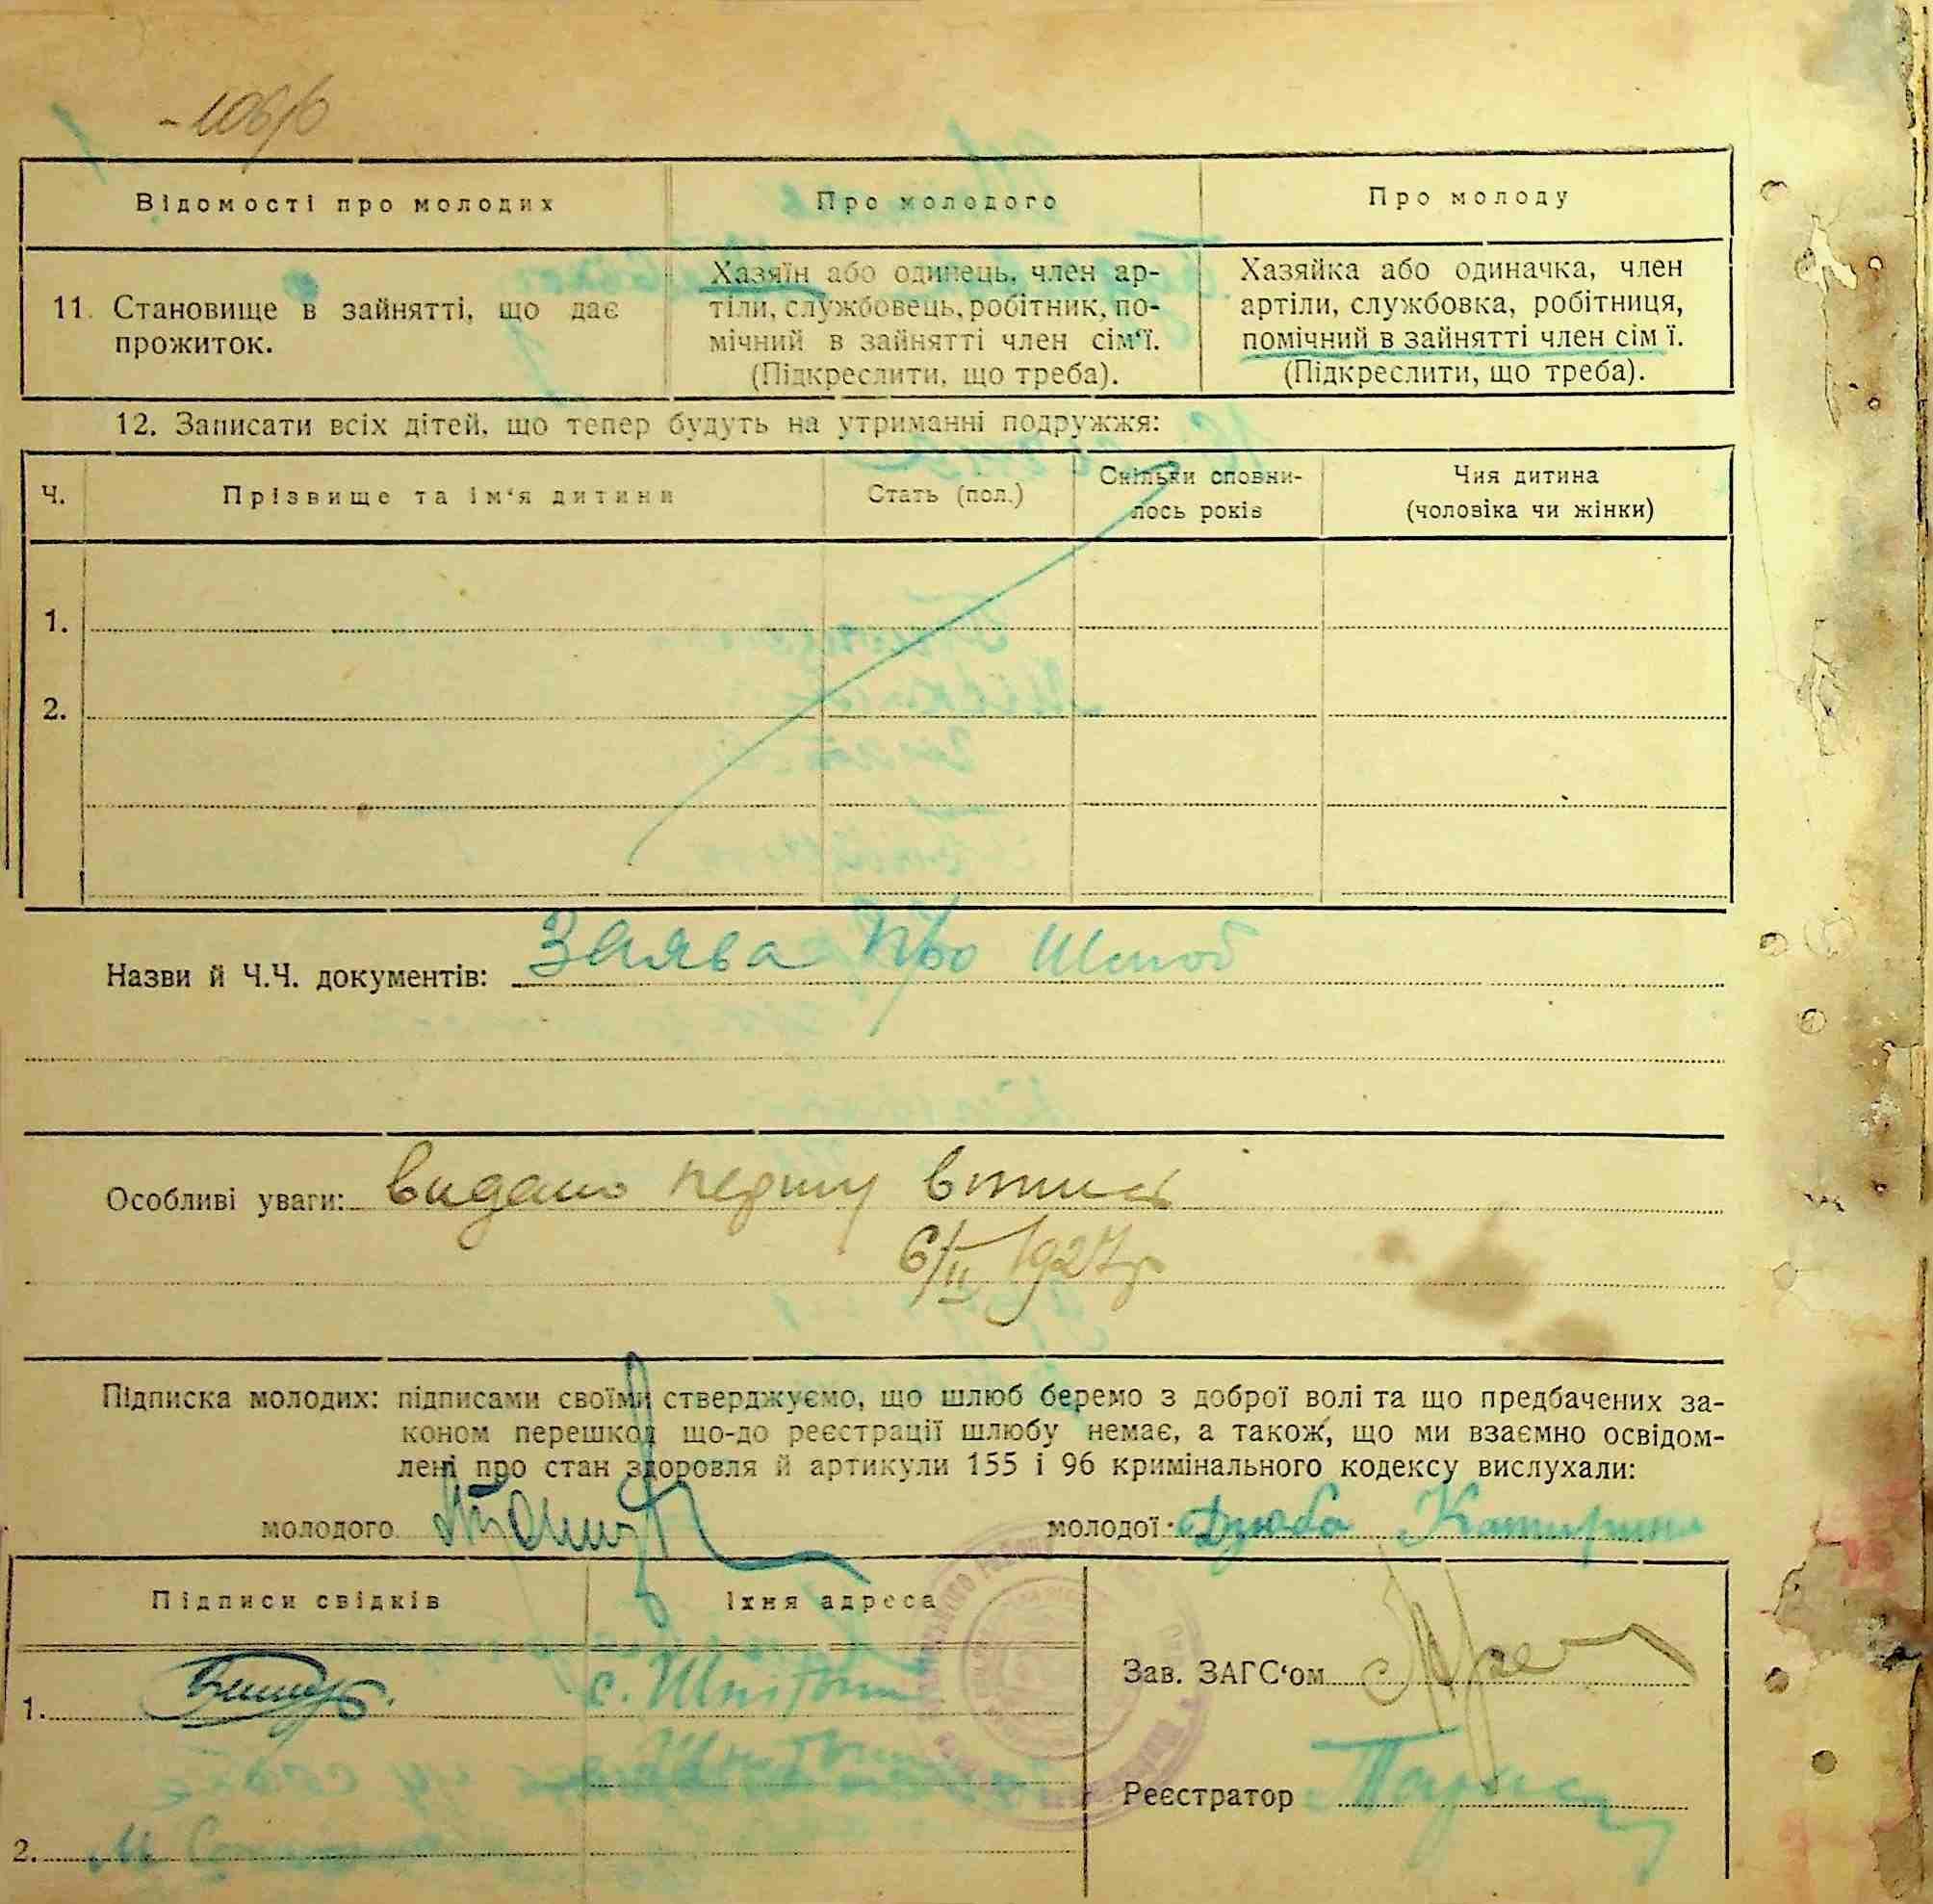 Відомості про молодих
Про молодого
Про молоду
11. Становище в зайнятті, що дає
прожиток.
Хазяїн або одинець, член ар-
тіли, службовець, робітник, по-
мічний в зайнятті член сім‘ї.
(Підкреслити, що треба).
Хазяйка або одиначка, член
артіли, службовка, робітниця,
помічний в зайнятті член сім ї.
(Підкреслити, що треба).
12. Записати всіх дітей, що тепер будуть на утриманні подружжя:
Ч.
Прізвище та ім‘я дитини
Стать (пол.)
Скільки сповни-
лось років
Чия дитина
(чоловіка чи жінки)
1.
2.
Назви й Ч.Ч. документів: Заява про Шлюб
Особливі уваги: видано першу
6/II 1927р
Підписка молодих: підписами своїми стверджуємо, що шлюб беремо з доброї волі та що предбачених за-
коном перешкод що-до реєстрації шлюбу немає, а також, що ми взаємно освідом-
лені про стан здоровля й артикули 155 і 96 кримінального кодексу вислухали:
молодого
молодої Дзюба Катирина
Підписи свідків
Їхня адреса
1.
с.
Зав. ЗАГС‘ом
Реєстратор
2.